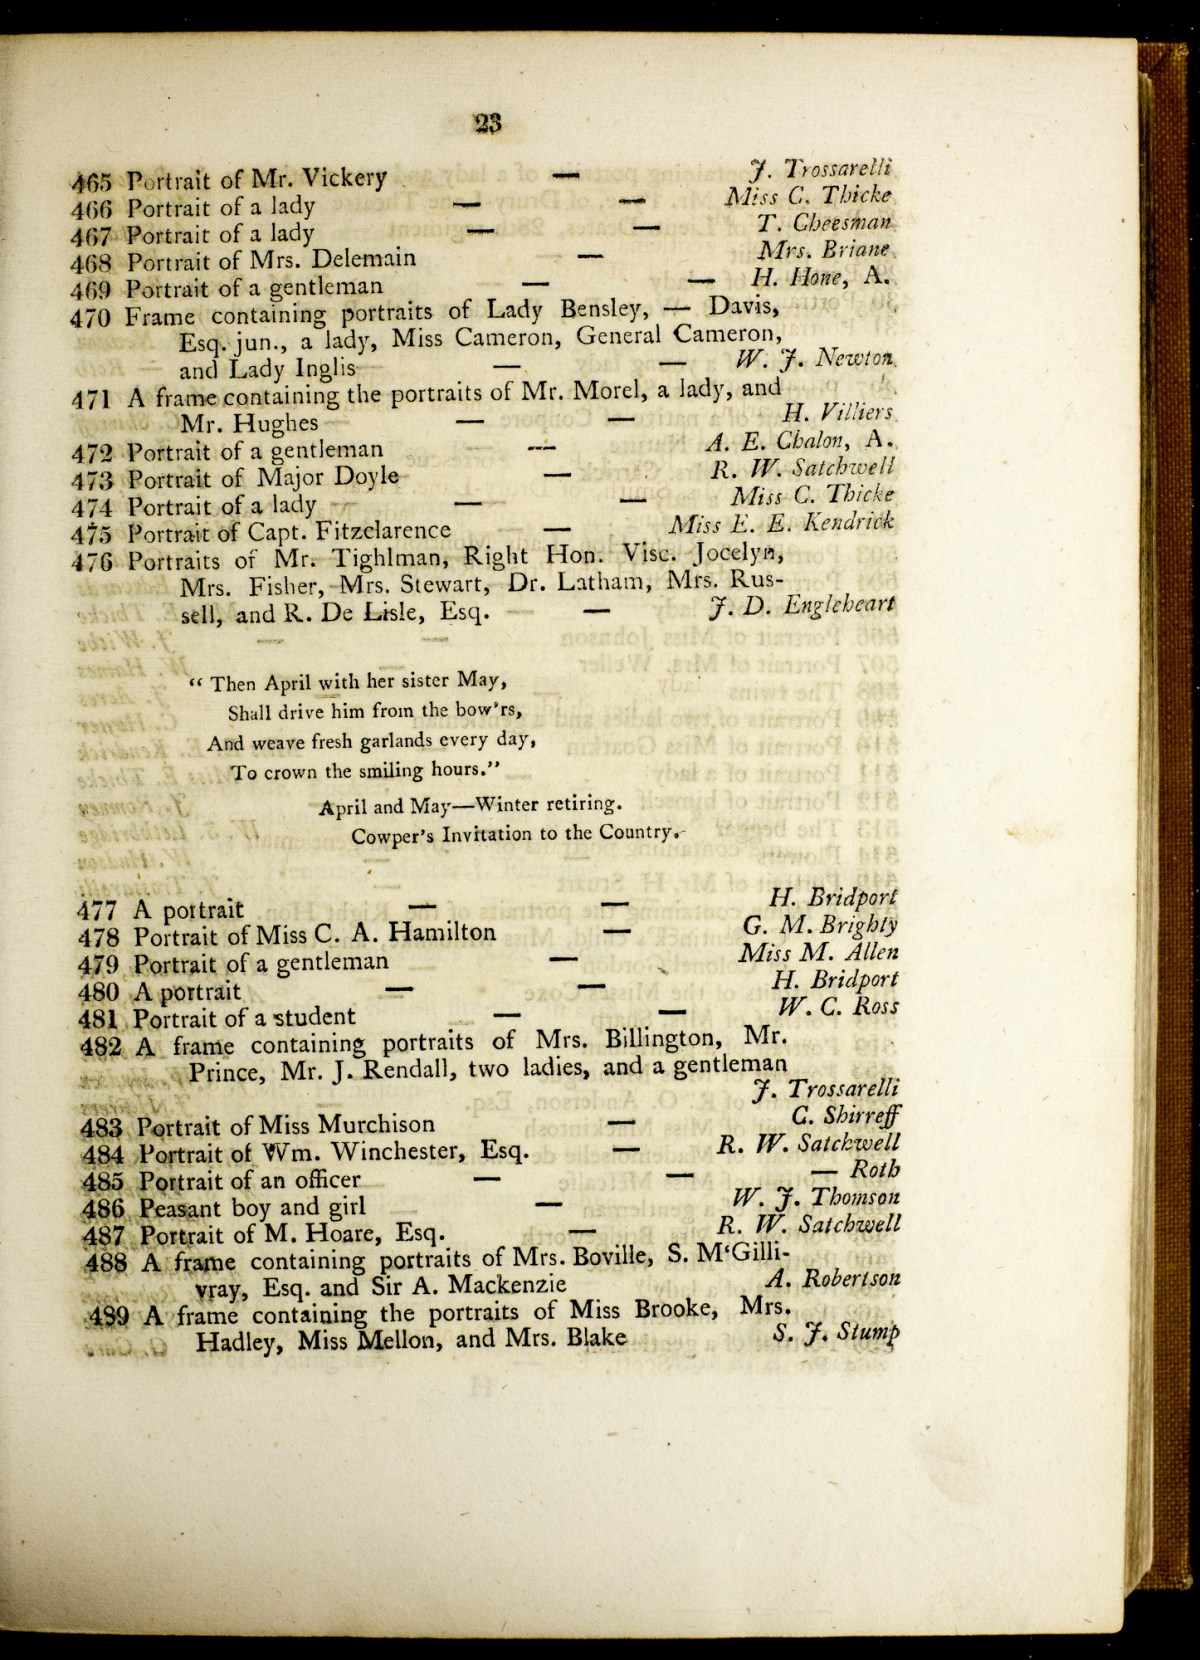 23
465 Portrait of Mr. Vickery — J. Trossarelli
466 Portrait of a lady — — Miss C. Thicke
467 Portrait of a lady — — T. Cheesman
468 Portrait of Mrs. Delemain — Mrs. Briane
469 Portrait of a gentleman — — H. Hone, A.
470 Frame containing portraits of Lady Bensley, — Davis,
Esq. jun., a lady, Miss Cameron, General Cameron,
and Lady Inglis — — W. J. Newton
471 A frame containing the portraits of Mr. Morel, a lady, and
Mr. Hughes — — H. Villiers
472 Portrait of a gentleman — A. E. Chalon, A.
473 Portrait of Major Doyle — R. W. Satchwell
474 Portrait of a lady — — Miss C. Thicke
475 Portrait of Capt. Fitzclarence — Miss E. E. Kendrick
476 Portraits of Mr. Tighlman, Right Hon. Visc. Jocelyn,
Mrs. Fisher, Mrs. Stewart, Dr. Latham, Mrs. Rus-
sell, and R. De Lisle, Esq. — J. D. Engleheart
“ Then April with her sister May,
Shall drive him from the bow'rs,
And weave fresh garlands every day,
To crown the smiling hours.”
April and May—Winter retiring.
Cowper's Invitation to the Country.
477 A portrait — — H. Bridport
478 Portrait of Miss C. A. Hamilton — G. M. Brighty
479 Portrait of a gentleman — Miss M. Allen
480 A portrait — — H. Bridport
481 Portrait of a student — — W. C. Ross
482 A frame containing portraits of Mrs. Billington, Mr.
Prince, Mr. J. Rendall, two ladies, and a gentleman
J. Trossarelli
483 Portrait of Miss Murchison — C. Shirreff
484 Portrait of Wm. Winchester, Esq. — R. W. Satchwell
485 Portrait of an officer — — — Roth
486 Peasant boy and girl — W. J. Thomson
487 Portrait of M. Hoare, Esq. — R. W. Satchwell
488 A frame containing portraits of Mrs. Boville, S. M‘Gilli-
vray, Esq. and Sir A. Mackenzie A. Robertson
489 A frame containing the portraits of Miss Brooke, Mrs.
Hadley, Miss Mellon, and Mrs. Blake S. J. Stump